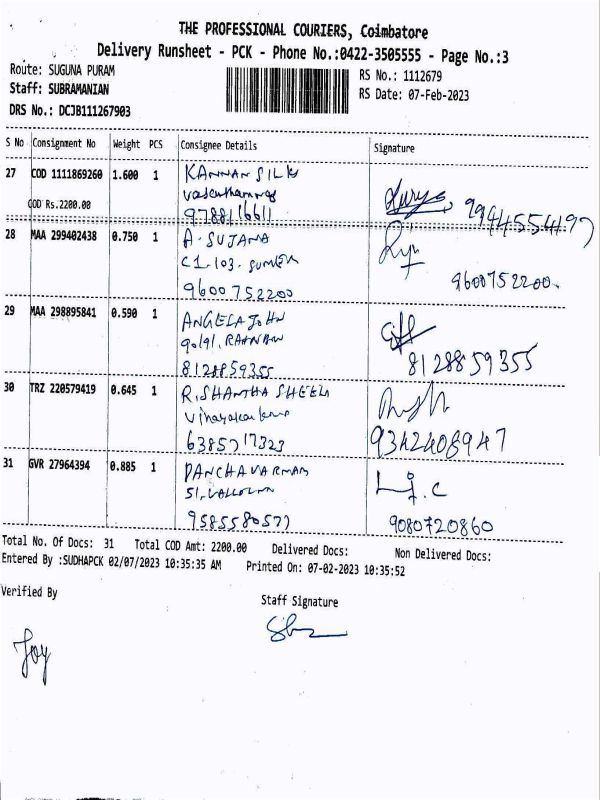 THE PROFESSIONAL COURIERS, Coimbatore
Delivery Runsheet - PCK - Phone No.:0422-3505555 - Page No.:3
Route: SUGUNA PURAM
RS No.: 1112679
Staff: SUBRAMANIAN
RS Date: 07-Feb-2023
DRS No.: DCJB111267903
S No Consignment No Weight PCS Consignee Details Signature
27 COD 1111869260 1.600 1 KANNAN SILK
COD Rs.2200.00
9788116611 9944554197
28 MAA 299402438 0.750 1 A. SUJANA
C1-103.
9600752200 9600752200.
29 MAA 298895841 0.590 1 ANGELA JOHN
90/91,
8128859355 8128859355
30 TRZ 220579419 0.645 1 R. SHANTHA SHEELA
6385717323 9342408947
31 GVR 27964394 0.885 1 PANCHAVARNAM
51,
9585580577 9080720860
Total No. Of Docs: 31 Total COD Amt: 2200.00 Delivered Docs: Non Delivered Docs:
Entered By :SUDHAPCK 02/07/2023 10:35:35 AM Printed On: 07-02-2023 10:35:52
Verified By
Staff Signature
Joy